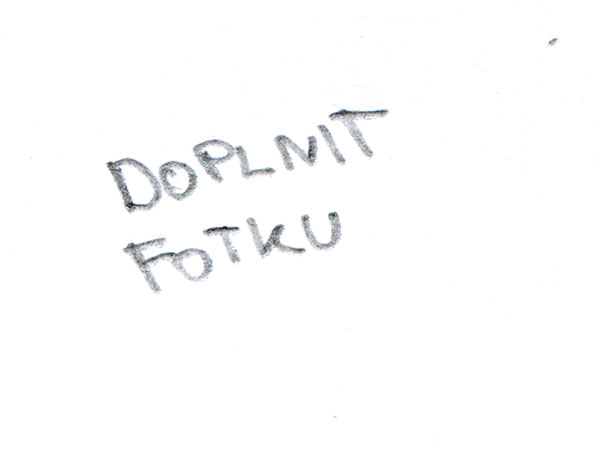 DOPLNIT
FOTKU